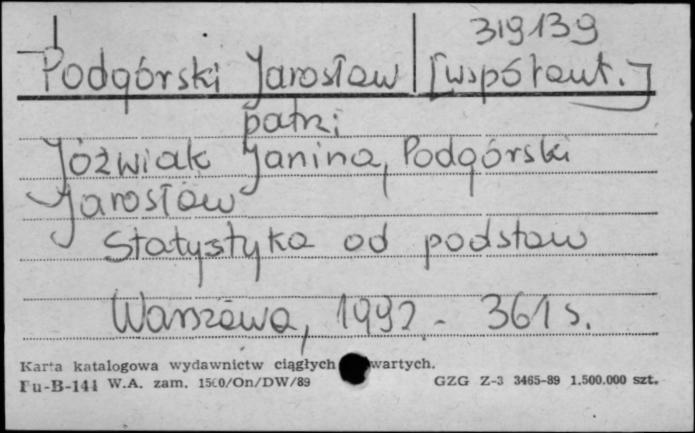 319139
Podgórski Jarosław [współaut.]
patrz:
Jóźwiak Janina, Podgórski
Jarosław
Statystyka od podstaw
Warszawa, 1992. - 361 s.
Karta katalogowa wydawnictw ciągłych wartych.
Pu-B-141 W.A. zam. 1500/On/DW/89 GZG Z-3 3465-89 1.500.000 szt.